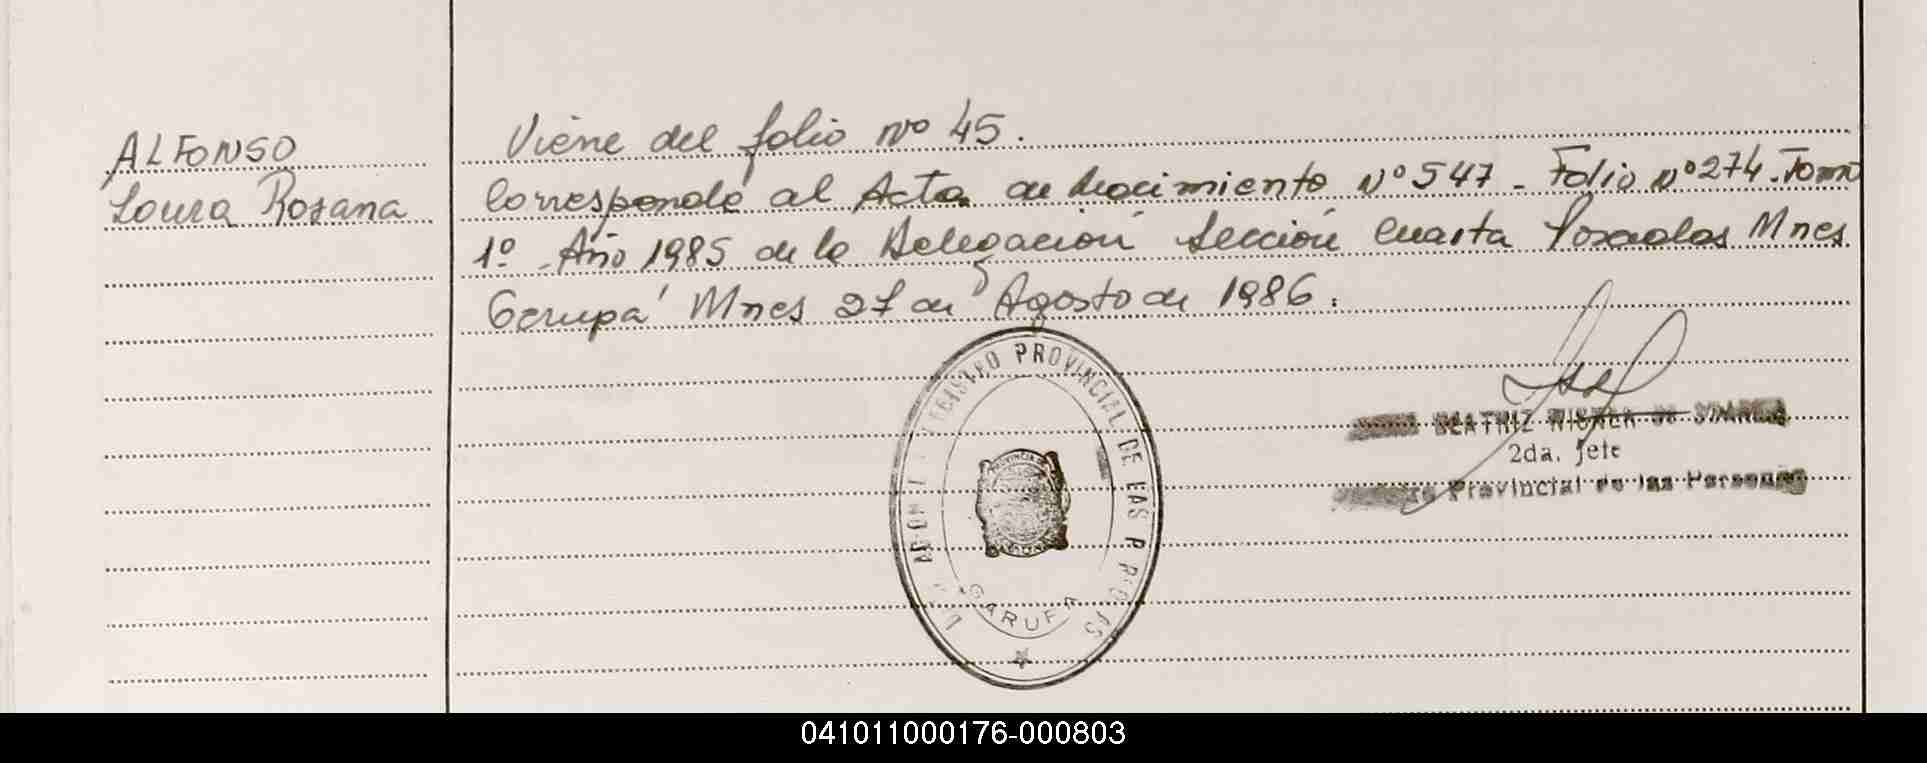 ALFONSO
Laura Rosana
Viene del folio nº 45.
Corresponde al Acta de Nacimiento Nº 547 - Folio Nº 274 - Tomo
1º - Año 1985 de la Delegación Sección Cuarta Posadas Mnes
Garupá Mnes 27 de Agosto de 1986.
REGISTRO PROVINCIAL DE LAS
GARUPA
BEATRIZ
2da. Jefe
Provincial de las Personas
041011000176-000803